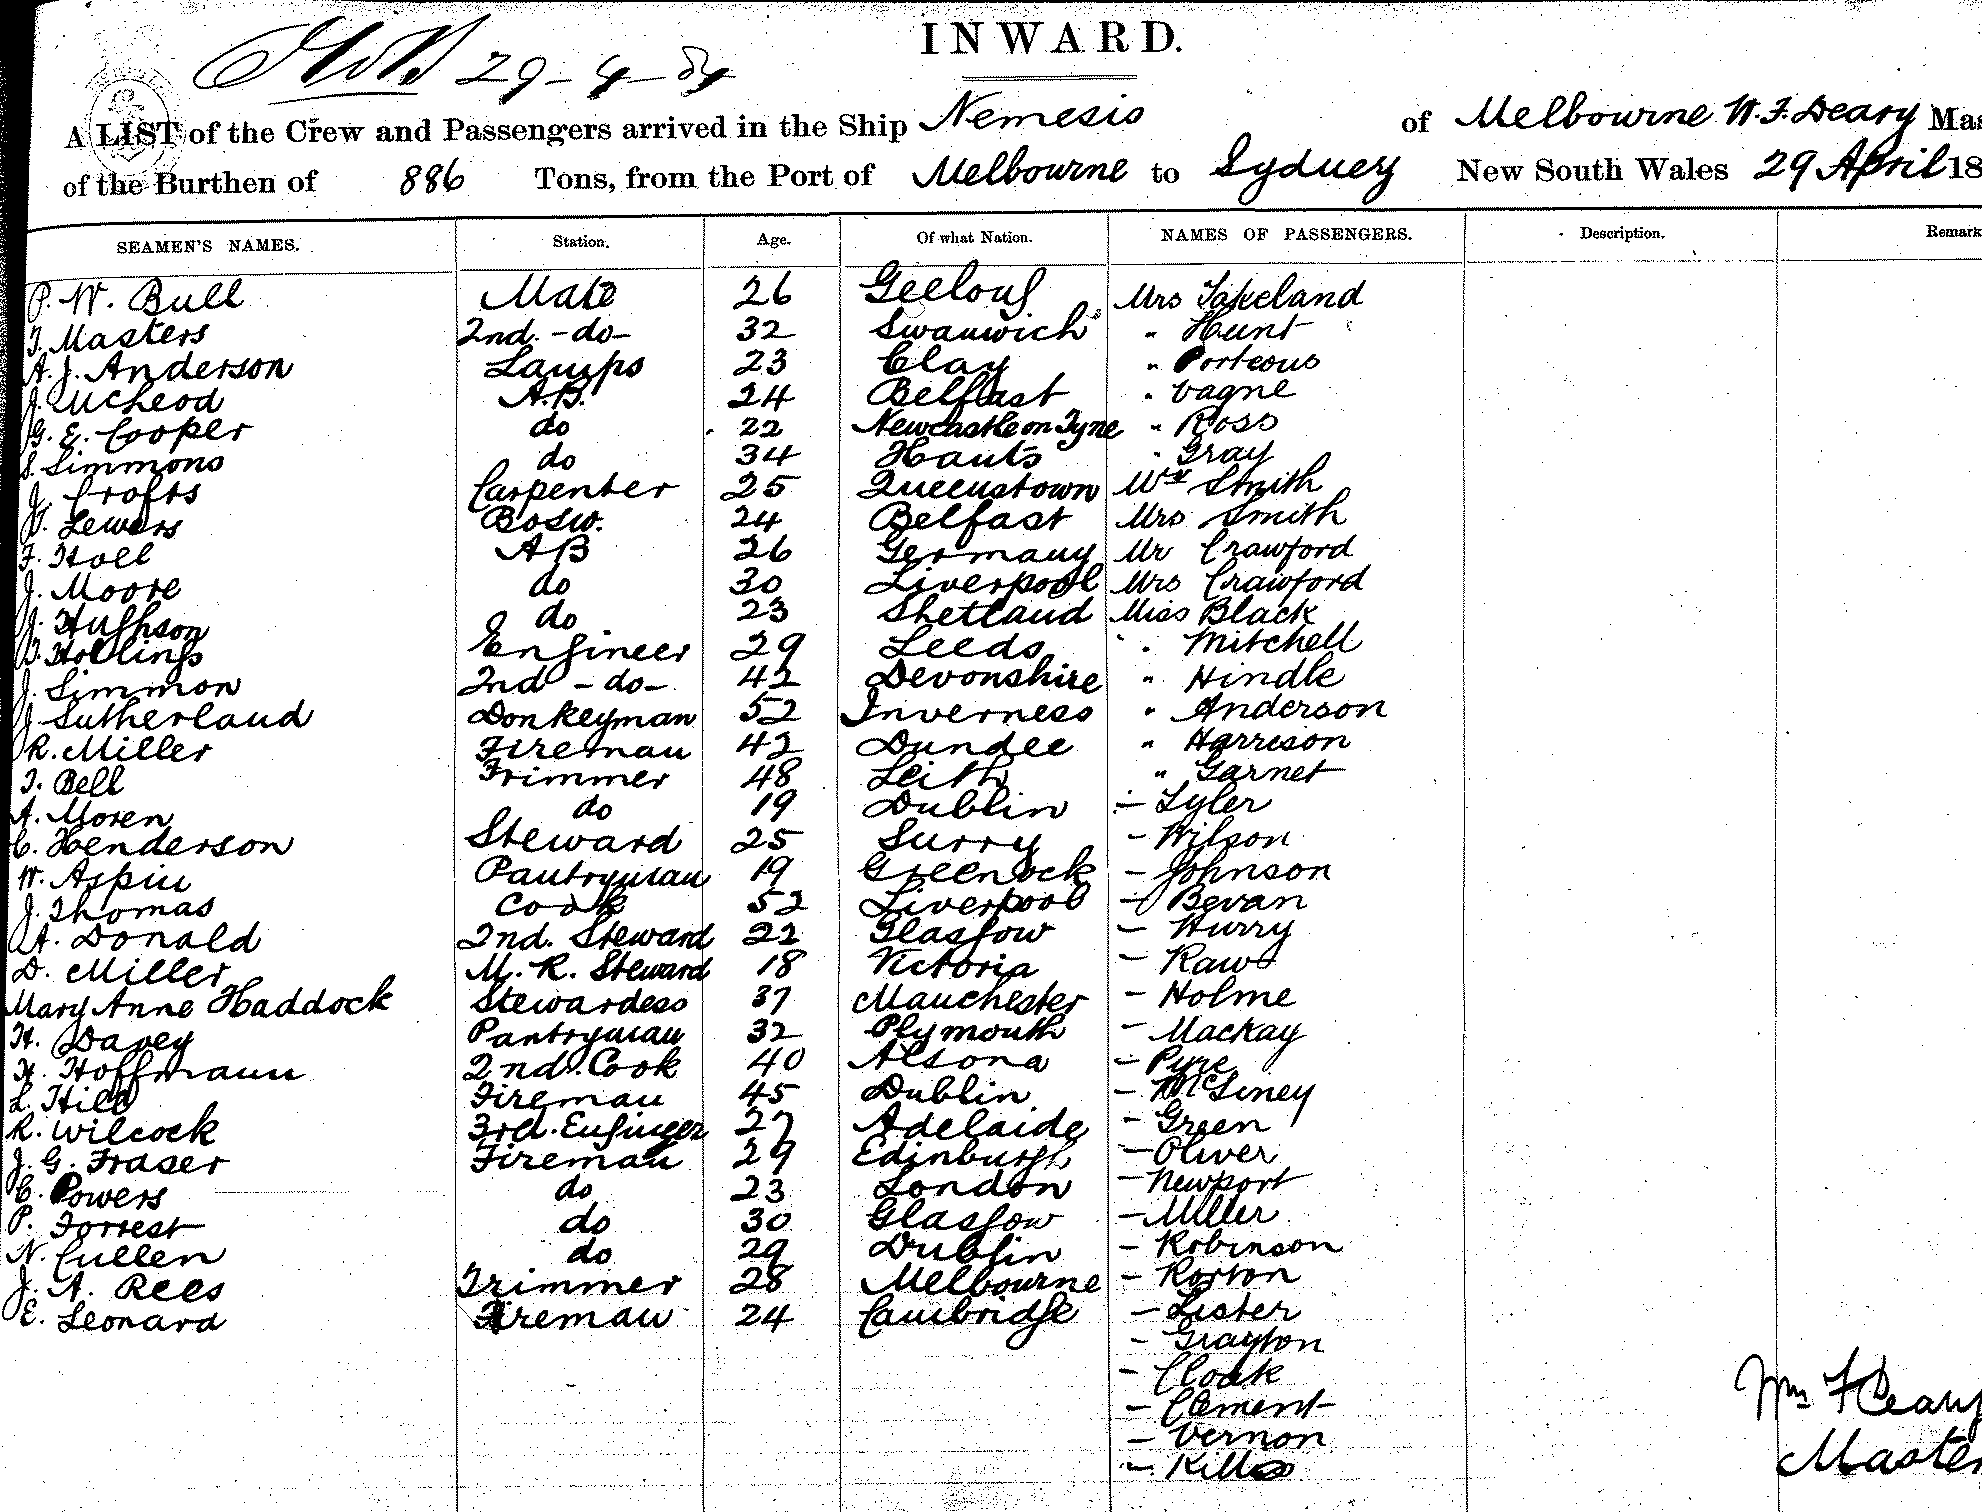 INWARD.
29-4-84
A LIST of the Crew and Passengers arrived in the Ship Nemesis of Melbourne W. F. Deary Mas
of the Burthen of 886 Tons, from the Port of Melbourne to Sydney New South Wales 29 April 18
SEAMEN'S NAMES. Station. Age. Of what Nation. NAMES OF PASSENGERS. Description. Remark
P. W. Bull Mate 26 Geelong Mrs Lakeland
T. Masters 2nd. -do- 32 Swanwich " Hunt
A. J. Anderson Lamps 23 Clay " Porteous
J. McLeod A.B. 24 Belfast " Vagne
G. E. Cooper do 22 Newcastle on Tyne " Ross
S. Simmons do 34 Hants " Gray
J. Crofts Carpenter 25 Queenstown Wm Smith
J. Lewers Bosw. 24 Belfast Mrs Smith
F. Holl AB 26 Germany Mr Crawford
J. Moore do 30 Liverpool Mrs Crawford
J. Hughson do 23 Shetland Miss Black
B. Hollings Engineer 29 Leeds " Mitchell
J. Simmon 2nd -do- 42 Devonshire " Hindle
J. Sutherland Donkeyman 52 Inverness " Anderson
R. Miller Fireman 42 Dundee " Harrison
T. Bell Trimmer 48 Leith " Garnet
A. Moren do 19 Dublin - Tyler
C. Henderson Steward 25 Surry - Wilson
W. Aspin Pantryman 19 Greenock - Johnson
J. Thomas Cook 52 Liverpool - Bevan
A. Donald 2nd. Steward 22 Glasgow - Hurry
D. Miller M. R. Steward 18 Victoria - Raws
Mary Anne Haddock Stewardess 37 Manchester - Holme
H. Davey Pantryman 32 Plymouth - Mackay
H. Hoffmann 2nd. Cook 40 Altona - Pyne
L. Hill Fireman 45 Dublin - McSiney
R. Wilcock 3rd. Engineer 27 Adelaide - Green
J. G. Fraser Fireman 29 Edinburgh - Oliver
C. Powers do 23 London - Newport
P. Forrest do 30 Glasgow - Miller
N. Cullen do 29 Dublin - Robinson
J. A. Rees Trimmer 28 Melbourne - Rorton
E. Leonard Fireman 24 Cambridge - Lister
- Grayton
- Cloak
- Clement
- Vernon
Wm F Deary
Master